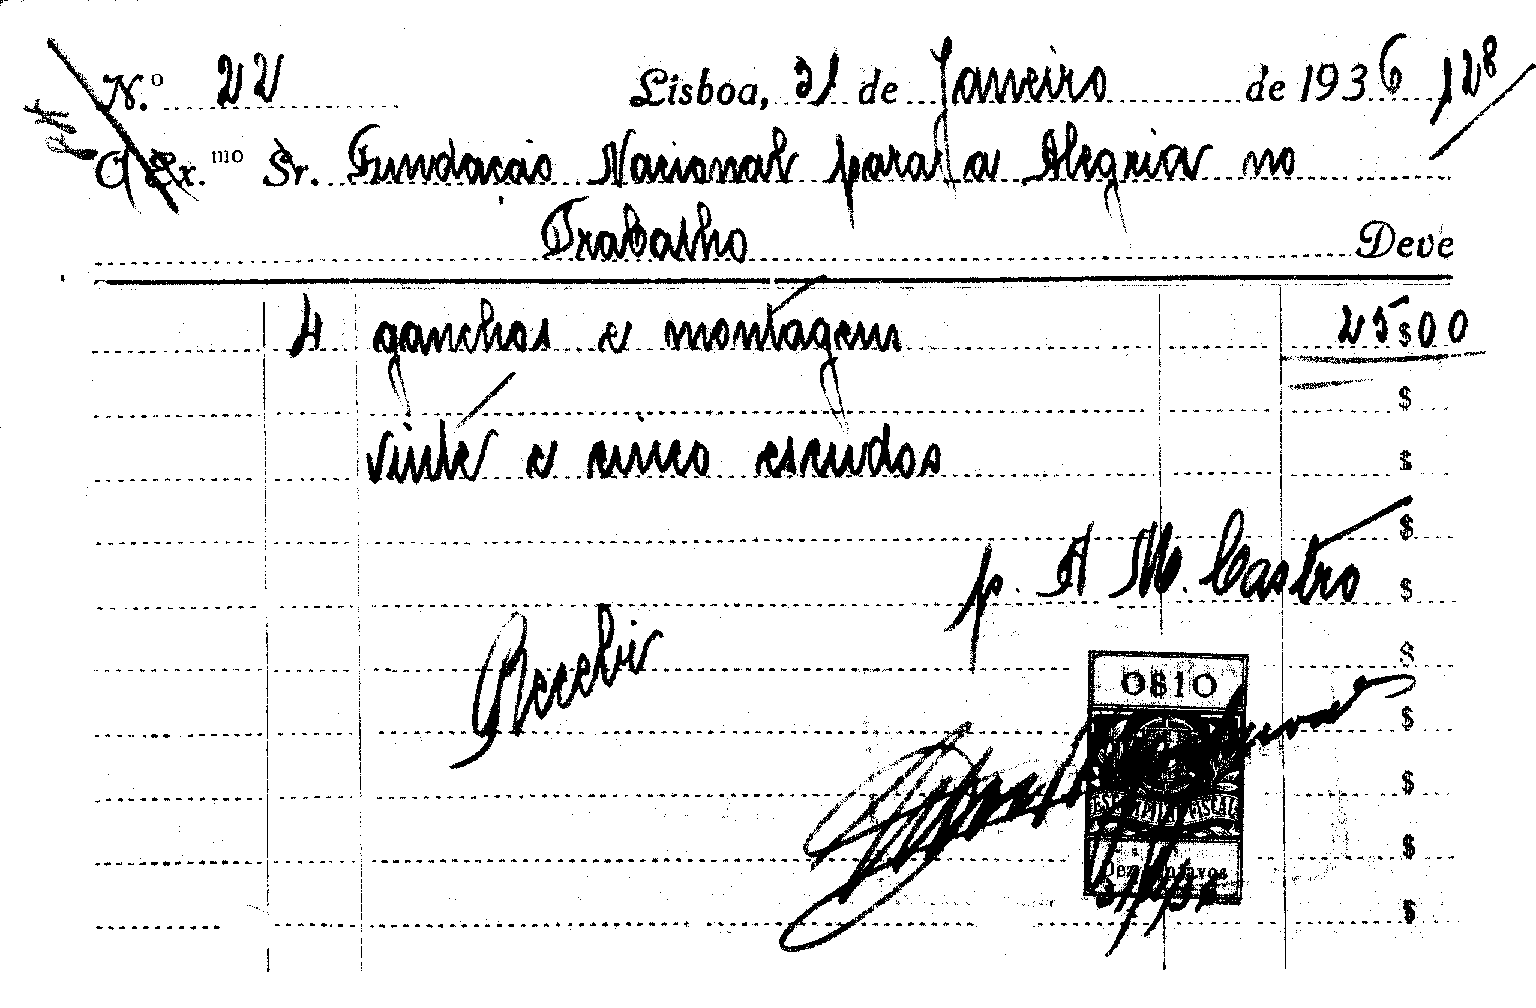 N.º 22 Lisboa, 31 de Janeiro de 1936 128
Ex.mo Sr. Fundação Nacional para a Alegria no
Trabalho Deve
4 ganchos e montagem 25$00
$
vinte e cinco escudos $
$
p. A M. Castro $
Recebi $
0$10
$
$
ESTAMPILHA FISCAL
$
Dez centavos
$